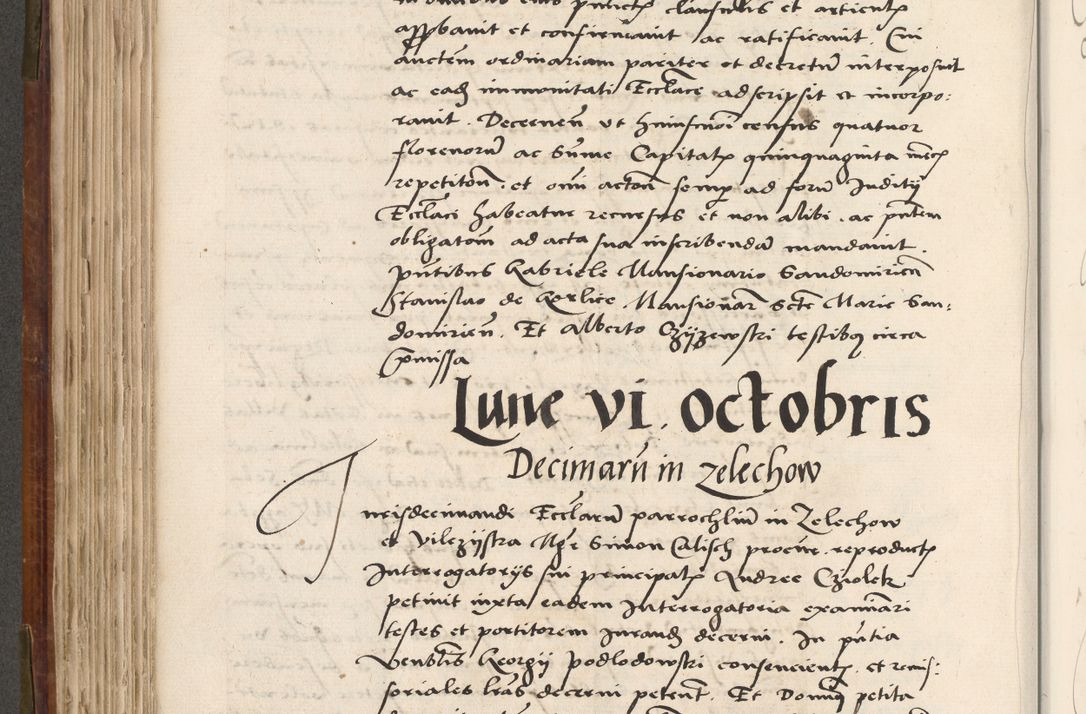 in omnibus eius punctis clausulis et articulis
approbavit et confirmavit ac ratificavit. Cui
auctem ordinariam pariter et decretū interposuit
ac eadꝫ immunitati Ecclace adscripsit et incorpo:
ravit. Decernen̄ ut huiusmōi census quatuor
florenorū ac Sūme Capitalꝭ quinquaginta mrcꝭ
repetitoni. et om̄i actōni semꝑ ad forū Juditij
Ecclaci habeatur recursus et non alibi. ac pn̄tem
obligatōm ad acta sua inscribendā mandavit.
pn̄tibus Gabriele Mansionario Sandomirien̄
Stanislao de Gorlice. Mansionar̄ Scte Marie San:
domirien̄. Et Alberto Czyzewski testibꝫ circa
p̄missa
Lune vi. octobris
Decimarū in zelechow
In crisdecimandi Ecclarū parrochliū in Zelechow
et Vilczyska Mgr̄ Simon Calisch procur. reproductꝭ
Interrogatorijs sui principalꝭ Andree Cziolek
petivit iuxta eadem Interrogatoria examinari
testes et portitorem iurandꝫ decerni. In pn̄tia
Venlblis Georgij Podlodowski consencientꝭ. et remis:
soriales lr̄as decerni petent̄. Et Domnꝰ petita